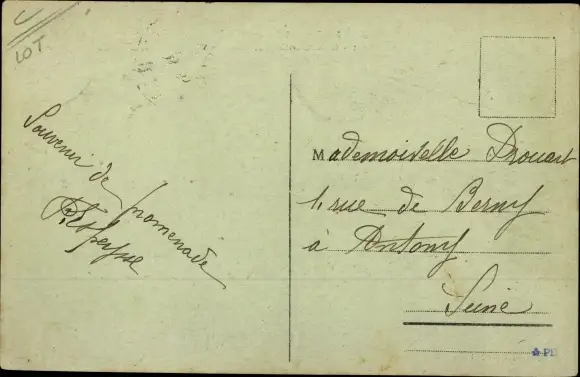 LOT
Souvenir de promenade
Mademoiselle Drouart
1, rue de Berny
à Antony
Seine
PD